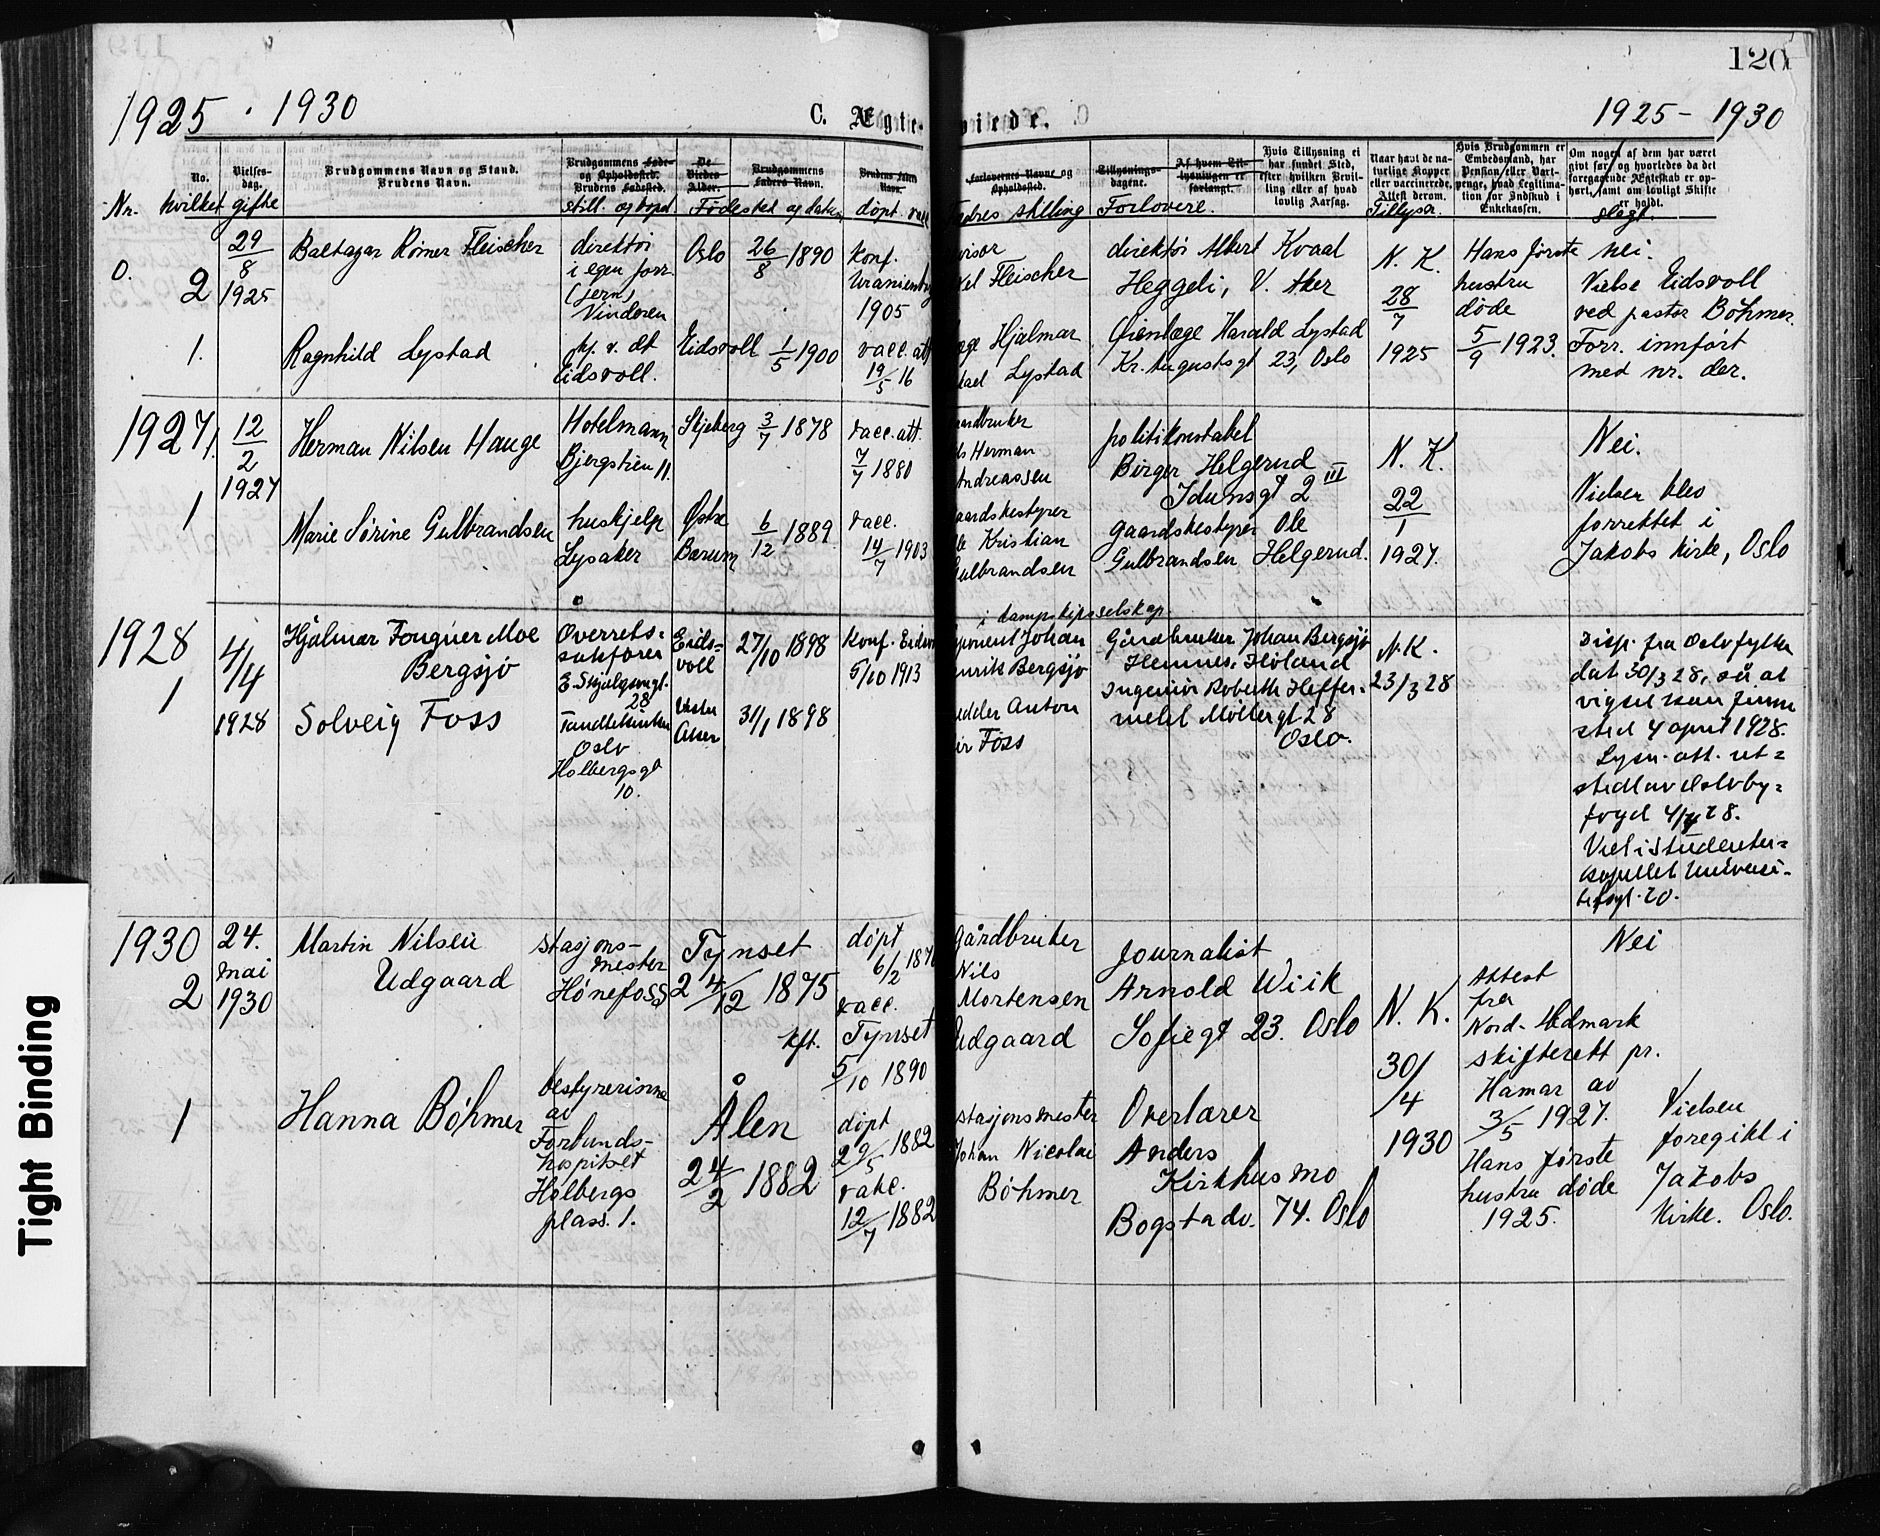 120
1925 - 1930
C. Ægte-
viede.
1925 - 1930
No.
Vielses-
dag.
Brudgommens Navn og Stand.
Brudens Navn.
Brudgommens Føde-
og Opholdssted.
Brudens Fødested.
De
Viedes
Alder.
Brudgommens
Faders Navn.
Brudens Faders
Navn.
Forlovernes Navne og
Opholdssted.
Tillysnings-
dagene.
Af hvem Til-
lysningen er
forlangt.
Hvis Tillysning ei
har fundet Sted,
efter hvilken Bevil-
ling eller af hvad
lovlig Aarsag.
Naar havt de na-
turlige Kopper
eller vaccinerede,
Attest derom.
Hvis Brudgommen er
Embedsmand, har
Pension eller Vart-
penge, hvad Legitima-
tion for Indskud i
Enkekassen.
Om nogen af dem har været
givt før, og hvorledes da det
foregaaende Ægteskab er op-
hørt, samt om lovligt Skifte
er holdt.
Nr. hvilket gifte
still. og bopel
Fødested og datum
døpt. vacc
Fædres stilling
Forlovere.
Tillysn.
slegt.
0. 2
29/8
1925
Baltazar Rømer Fleischer
direktør
i egen forr.
(jern)
Vinderen
Oslo 26/8 1890
konf.
Uranienborg
1905
Fleischer
direktør Albert Kvaal
Heggeli, V. Aker
N. K.
28/7
1925
Hans første
hustru
døde
5/9 1923.
Nei.
Vielse Eidsvoll
ved pastor Böhmer.
Forr. innført
med nr. der.
1.
Ragnhild Lystad
Eidsvoll.
Eidsvoll 1/5 1900
vacc. att
19/5 16
Hjalmar
Lystad
Øienlæge Harald Lystad
Kr. Augustsgt 23, Oslo
1927
1.
12/2
1927
Herman Nilsen Hauge
Hotelmann
Bjergstien 11.
Skjeberg 3/7 1878
vacc. att.
7/7 1880
Herman
Andreassen
politikonstabel
Birger Helgerud
Idunsgt 2 III
N. K.
22/1
1927.
Nei.
Vielsen blev
forrettet i
Jakobs kirke, Oslo
1
Marie Sørine Gulbrandsen
hushjelp
Lysaker
Østre
Bærum
6/12 1889
vacc.
14/7 1903
gaardsbestyrer
Ole Kristian
Gulbrandsen
gaardsbestyrer Ole
Gulbrandsen Helgerud.
1928
1
4/4
1928
Hjalmar Fougner Moe
Bergsjø
Overrets-
sakfører
E. Skjalgsons gt.
28
Eids-
voll
27/10 1898
konf. Eidsvoll
5/10 1913
i dampskipsselskap
Johan
Henrik Bergsjø
Gårdbruker Johan Bergsjø
Hemnes, Høland
N. K.
23/3 28
Disp. fra Oslo fylke
dat 30/3 28, så at
vigsel kan finne
sted 4 april 1928.
Lysn. att. ut-
stedt av Oslo by-
fogd 4/4 28.
Viet i Studenter-
kapellet Universi-
tetsgt. 20.
Solveig Foss
Oslo
Holbergsgt
10.
Vestre
Aker
31/1 1898
Anton
Foss
Ingeniør Roberth Heffer-
mehl Møllergt 28
Oslo.
1930
2
24.
mai
1930
Martin Nilsen
Udgaard
stasjons-
mester
Hønefoss
Tynset
24/12 1875
døpt
6/2 1876
vacc.
kft. Tynset
5/10 1890
gårdbruker
Nils
Mortensen
Udgaard
Journalist
Arnold Wiik
Sofiegt 23. Oslo
N. K.
30/4
1930
Attest
fra
Nord-Hedmark
skifterett pr.
Hamar av
3/5 1927.
Hans første
hustru døde
1925.
Nei
Vielsen
foregikk i
Jakobs
Kirke. Oslo.
1
Hanna Böhmer
bestyrerinne
av
Forbunds-
hospitset
Holbergs
plass. 1.
Ålen
24/2 1882
døpt
29/5 1882
vakc.
12/7 1882
stasjonsmester
Johan Nicolai
Böhmer
Overlærer
Anders
Kirkhusmo
Bogstadv. 74. Oslo
Tight Binding